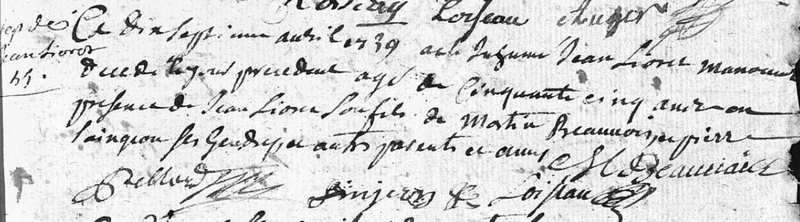 Loiseau
Sep. de Ce dix septieme avril 1739 a este Inhumé Jean Lioret manoeuvre
Jean Lioret decedé le jour precedent agé de Cinquante cinq ans en
55. presence de Jean Lioret son fils de Martin Beaunois, de pierre
Saingeon ses Gendres, et autres parents et amis
M Beaunois
Singeon Loiseau